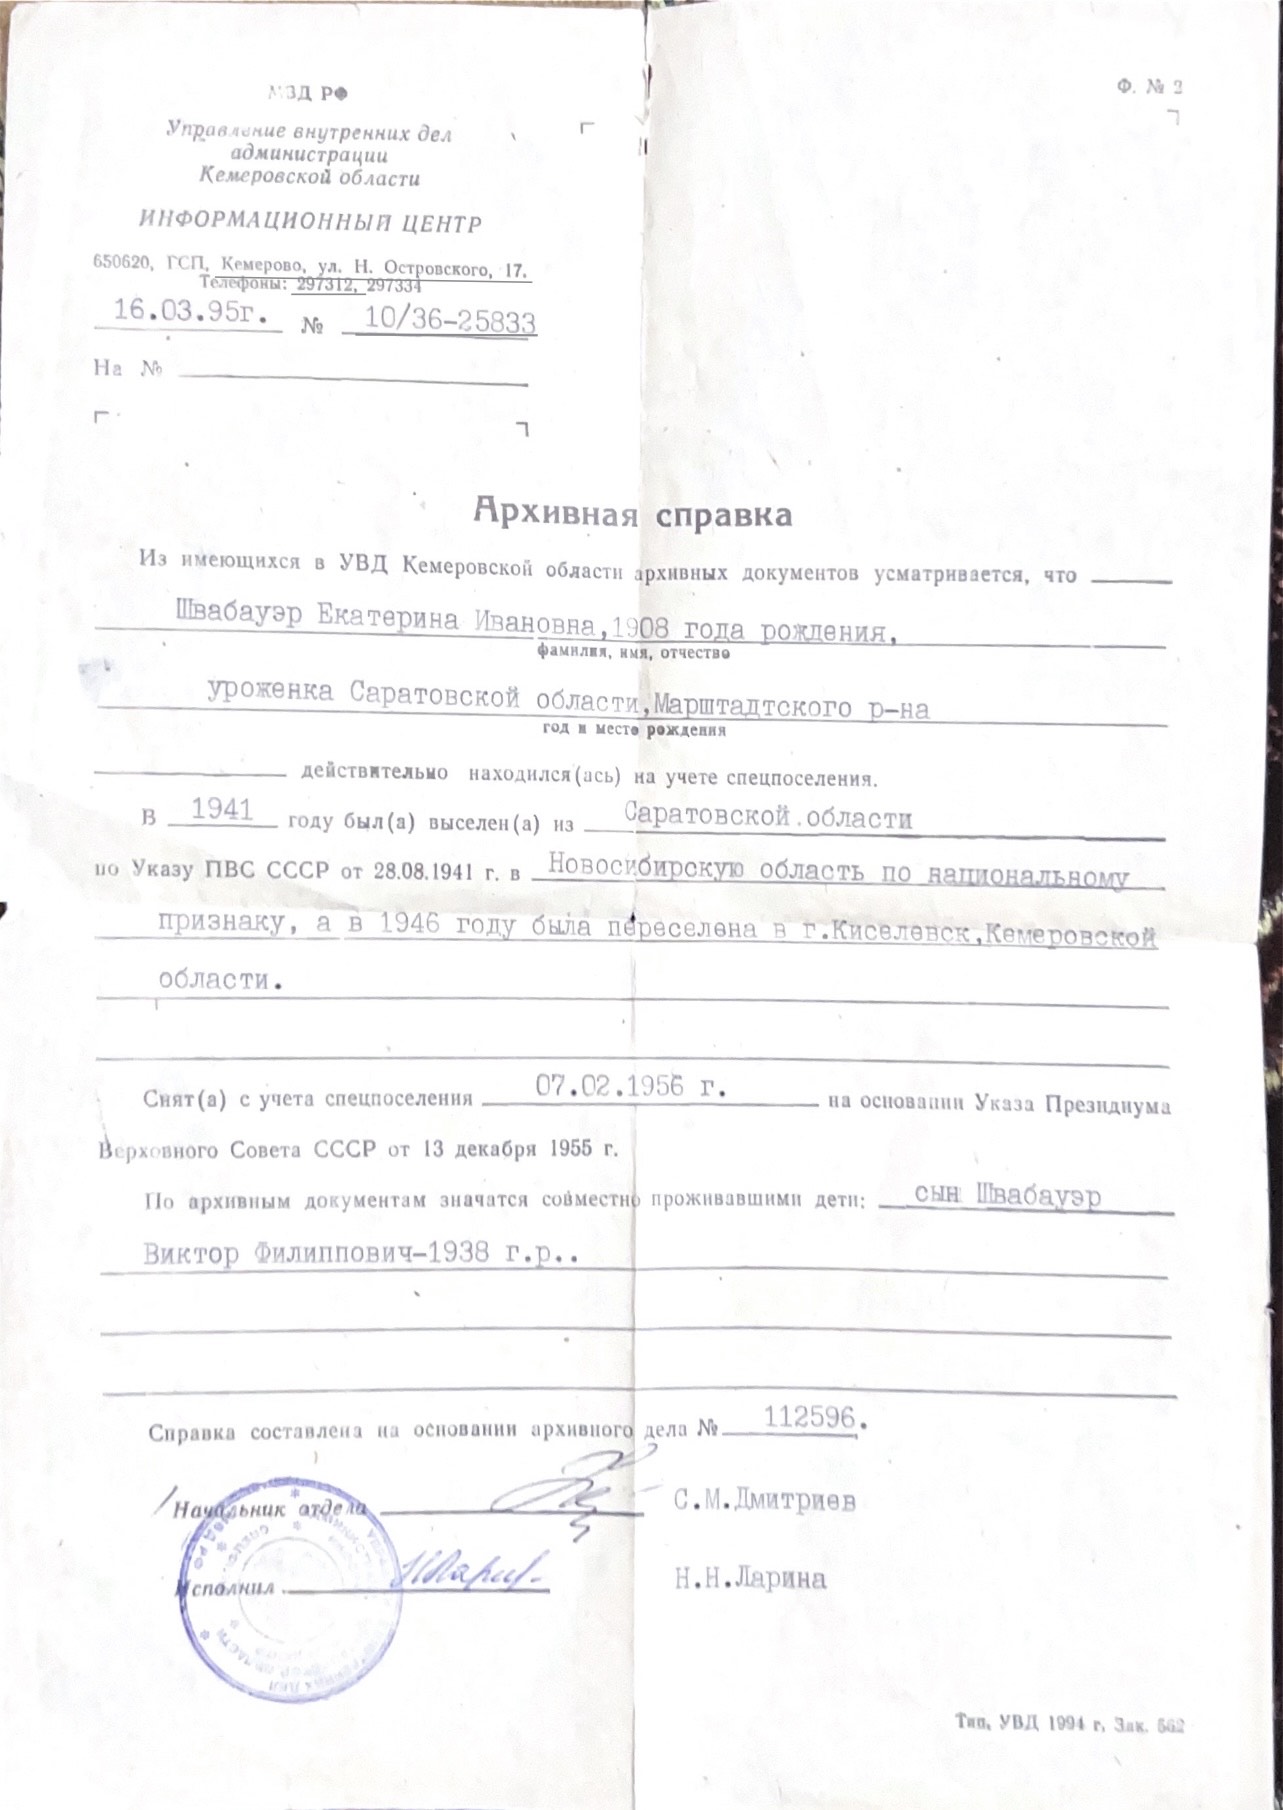 МВД РФ
Ф. № 2
Управление внутренних дел
администрации
Кемеровской области
ИНФОРМАЦИОННЫЙ ЦЕНТР
650620, ГСП, Кемерово, ул. Н. Островского, 17.
Телефоны: 297312, 297334
16.03.95г. № 10/36-25833
На №
Архивная справка
Из имеющихся в УВД Кемеровской области архивных документов усматривается, что
Швабауэр Екатерина Ивановна,1908 года рождения,
фамилия, имя, отчество
уроженка Саратовской области,Марштадтского р-на
год и место рождения
действительно находился(ась) на учете спецпоселения.
В 1941 году был(а) выселен(а) из Саратовской области
по Указу ПВС СССР от 28.08.1941 г. в Новосибирскую область по национальному
признаку, а в 1946 году была переселена в г.Киселевск,Кемеровской
области.
Снят(а) с учета спецпоселения 07.02.1956 г. на основании Указа Президиума
Верховного Совета СССР от 13 декабря 1955 г.
По архивным документам значатся совместно проживавшими дети: сын Швабауэр
Виктор Филиппович-1938 г.р..
Справка составлена на основании архивного дела № 112596.
Начальник отдела С.М.Дмитриев
Исполнил Н.Н.Ларина
Тип. УВД 1994 г. Зак. 562